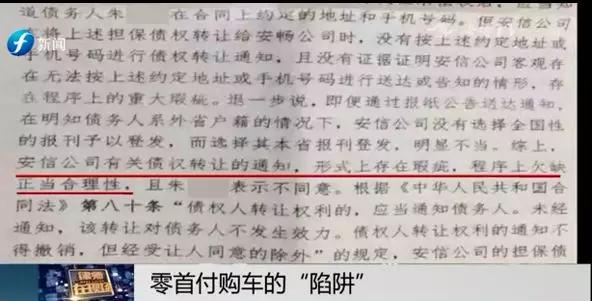 道债务人朱 在合同上约定的地址和手机号码。但安信公司
将上述担保债权转让给安畅公司时，没有按上述约定地址或
手机号码进行债权转让通知，且没有证据证明安信公司客观存
在无法按上述约定地址或手机号码进行送达或告知的情形，存
在程序上的重大瑕疵。退一步说，即便通过报纸公告送达通知，
在明知债务人系外省户籍的情况下，安信公司没有选择全国性
的报刊予以登发，而选择其本省报刊登发，明显不当。综上，
安信公司有关债权转让的通知，形式上存在瑕疵，程序上欠缺
正当合理性，且朱 表示不同意。根据《中华人民共和国合
同法》第八十条“债权人转让权利的，应当通知债务人。未经
通知，该转让对债务人不发生效力。债权人转让权利的通知不
得撤销，但经受让人同意的除外”的规定，安信公司的担保债
新闻
律师在现场
零首付购车的“陷阱”